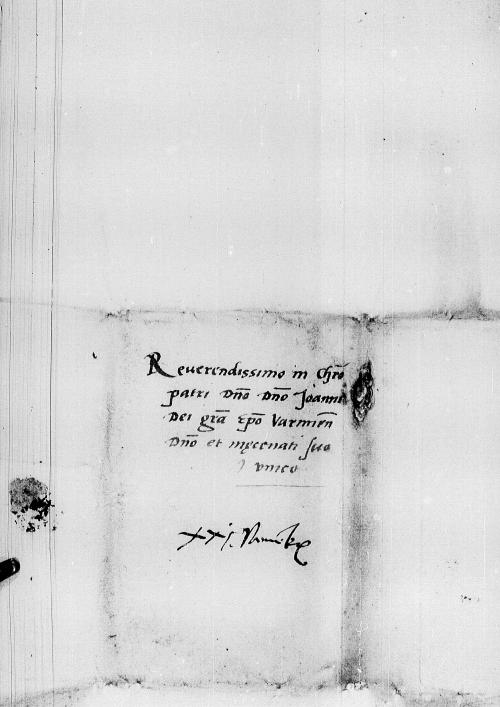 Reuerendissimo in Chr̄o
patri Dn̄o Dn̄o Joanni
Dei gr̄a Ep̄o Varmien̄
Dn̄o et męcenati suo
vnico
xxj.